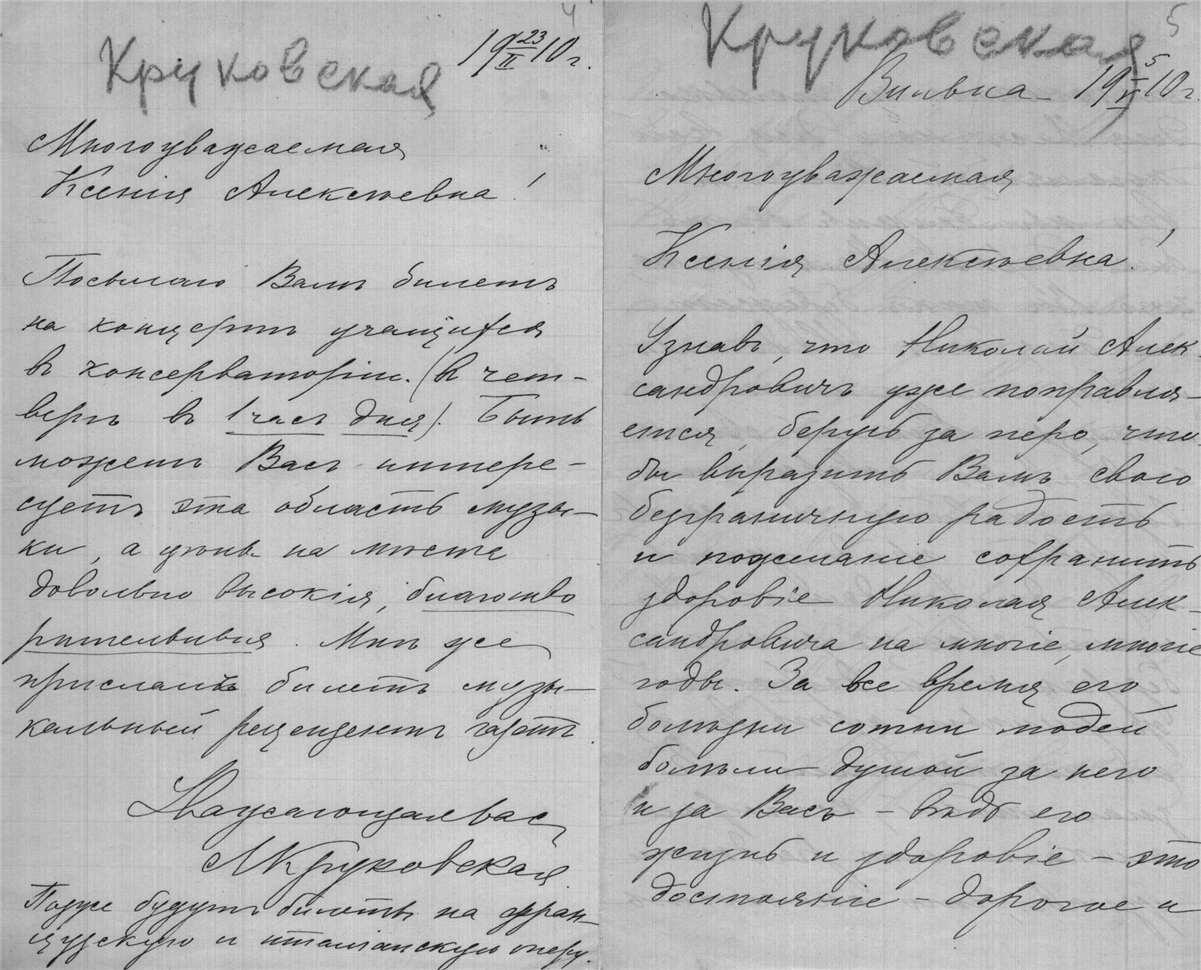 4
Круковская
19 23/II 10 г.
Многоуважаемая
Ксенія Алексѣевна!
Посылаю Вамъ билетъ
на концертъ учащихся
въ консерваторіи. (Въ чет-
вергъ въ 1 часъ дня). Быть
можетъ Васъ интере-
суетъ эта область музы-
ки, а цѣны на мѣста
довольно высокія, благотво
рительныя. Мнѣ же
прислалъ билетъ музы-
кальный рецензентъ газетъ.
Уважающая Васъ
МКруковская.
Позже будутъ билеты на фран
цузскую и итальянскую оперу.
5
Круковская
Вильна 19 5/V 10 г
Многоуважаемая
Ксенія Алексѣевна!
Узнавъ, что Николай Алек
сандровичъ уже поправля-
ется, берусь за перо, что
бы выразить Вамъ свою
безграничную радость
и пожеланіе сохранить
здоровіе Николая Алек-
сандровича на многіе, многіе
годы. За все время его
болѣзни сотни людей
болѣли душой за него
и за Васъ – вѣдь его
жизнь и здоровіе – это
достояніе – дорогое и